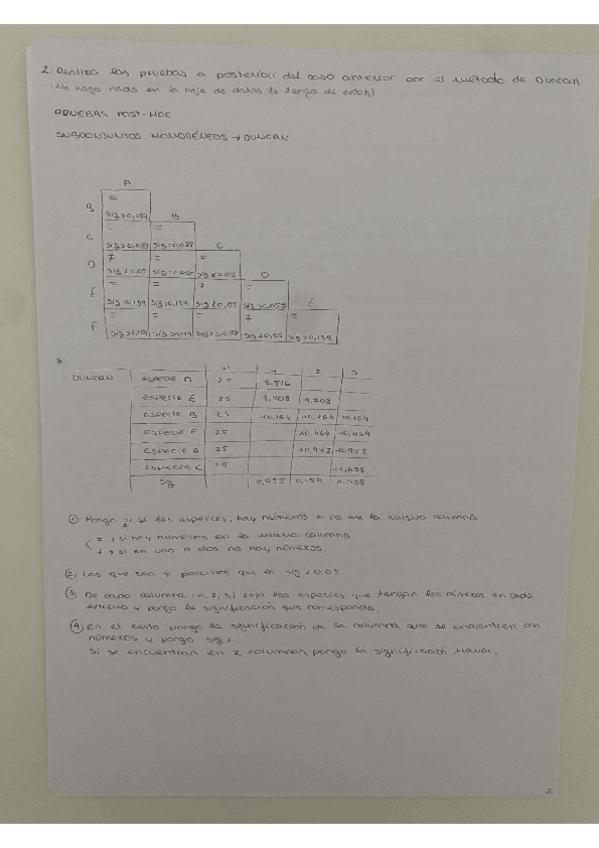 2. Realiza las pruebas a posteriori del caso anterior por el método de Duncan
(No hago nada en la hoja de datos lo tengo de antes)
PRUEBAS POST-HOC
SUBCONJUNTOS HOMOGÉNEOS → DUNCAN
A
B = sig>0,159 B
C = = C
D ≠ sig<0.05 = = sig<0.05 D
E = = sig>0,159 ≠ sig<0,05 = sig>0,055 E
F = = = ≠ sig<0,05 = sig>0,159
DUNCAN especie D 25 8,516
especie E 25 9,708 9,708
especie B 25 10,164 10,164 10,164
especie F 25 10,464 10,464
especie A 25 10,942 10,942
especie C 25
Sig 0,055 0,159
① Pongo si las especies, hay números o no en la misma columna
= → si hay números en la misma columna
≠ → si en una o dos no hay números
② Los que son ≠ ponemos que en sig<0.05
③ De cada columna (1, 2, 3) cojo las especies que tengan los números en cada
extremo y pongo la significación que corresponda.
④ En el resto pongo la significación de la columna que se encuentren con
números y pongo sig>
Si se encuentran en 2 columnas, pongo la significación mayor.
2